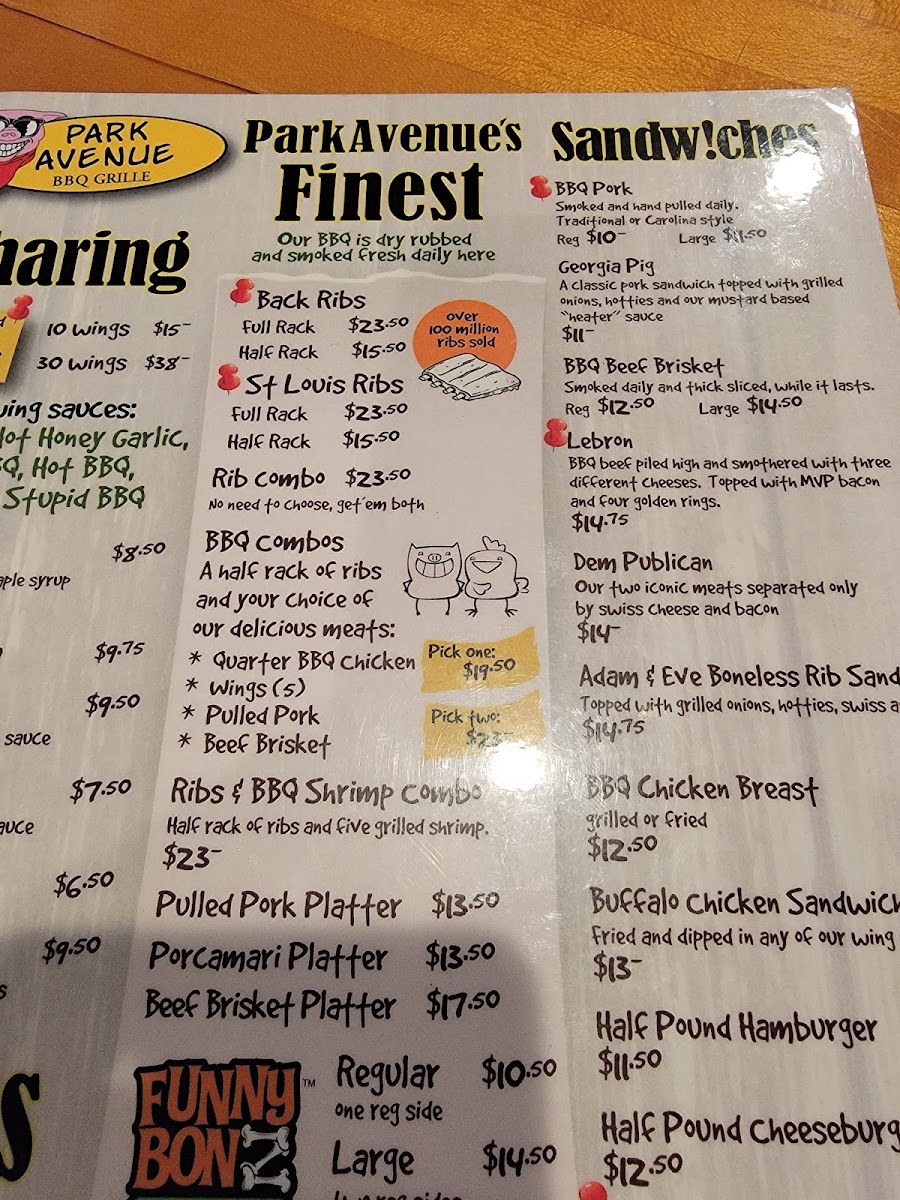 PARK
AVENUE
BBQ GRILLE
haring
10 wings $15-
30 wings $38-
wing sauces:
Hot Honey Garlic,
Q, Hot BBQ,
Stupid BBQ
$8.50
aple syrup
$9.75
$9.50
sauce
$7.50
auce
$6.50
$9.50
s
Park Avenue's
Finest
Our BBQ is dry rubbed
and smoked fresh daily here
Back Ribs
Full Rack $23.50
Half Rack $15.50
over
100 million
ribs sold
St Louis Ribs
Full Rack $23.50
Half Rack $15.50
Rib combo $23.50
No need to choose, get'em both
BBQ combos
A half rack of ribs
and your choice of
our delicious meats:
* Quarter BBQ chicken
* wings (5)
* Pulled Pork
* Beef Brisket
Pick one:
$19.50
Pick two:
$23-
Ribs & BBQ Shrimp combo
Half rack of ribs and five grilled shrimp.
$23-
Pulled Pork Platter $13.50
Porcamari Platter $13.50
Beef Brisket Platter $17.50
FUNNY
BON
™
Regular $10.50
one reg side
Large $14.50
Sandw!ches
BBQ Pork
Smoked and hand pulled daily.
Traditional or Carolina style
Reg $10- Large $11.50
Georgia Pig
A classic pork sandwich topped with grilled
onions, hotties and our mustard based
"heater" sauce
$11-
BBQ Beef Brisket
Smoked daily and thick sliced, while it lasts.
Reg $12.50 Large $14.50
Lebron
BBQ beef piled high and smothered with three
different cheeses. Topped with MVP bacon
and four golden rings.
$14.75
Dem Publican
Our two iconic meats separated only
by swiss cheese and bacon
$14-
Adam & Eve Boneless Rib Sand
Topped with grilled onions, hotties, swiss a
$14.75
BBQ Chicken Breast
grilled or fried
$12.50
Buffalo Chicken Sandwich
Fried and dipped in any of our wing
$13-
Half Pound Hamburger
$11.50
Half Pound Cheeseburg
$12.50